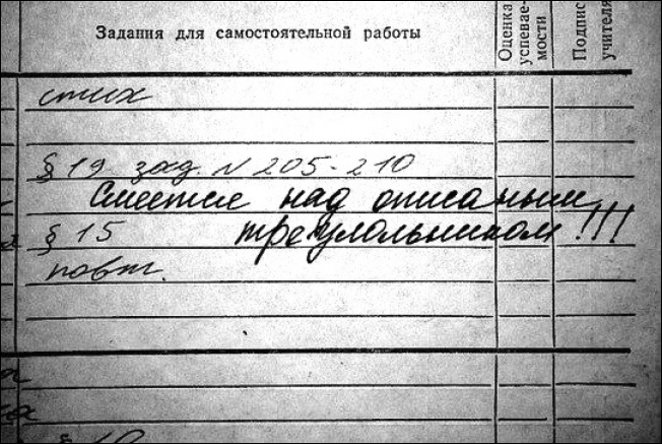 Задания для самостоятельной работы
Оценка
успевае-
мости
Подпис
учителя
стих
§ 19 зад. N 205-210
Смеется над описаным
§ 15 треугольником!!!
повт.
§ 19